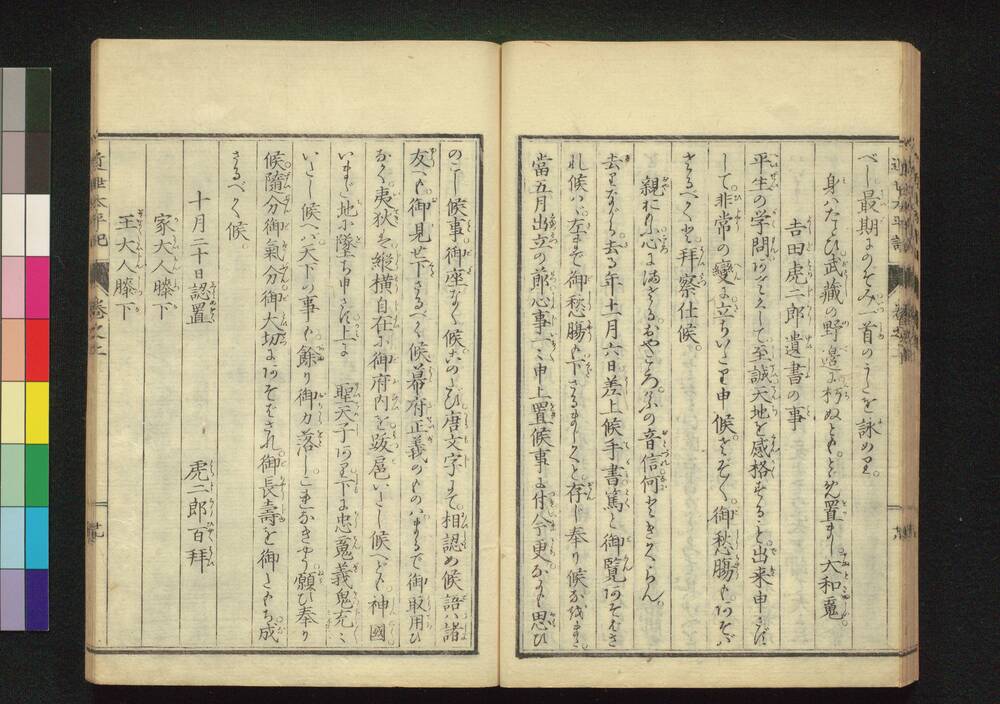 べし最期にのぞみ一首のうたを詠めり。
身ハたとひ武蔵の野邉に朽ぬともとゞめ置まし大和魂
吉田虎二郎遺書の事
平生の学問あさくして至誠天地を感格することと出来申さず
して非常の變に立ちいたり申候さぞ〳〵御愁腸もあそバ
さるべくと拜察仕候。
親おもふ心にまさるおやごゝろ今日の音信何ときくらん
去りながら去る年十一月六日差上候手書篤と御覧あそバさ
れ候ハヾ左まで御愁腸も下さるまじくと存じ奉り候なほまた
當五月出立の節心事一ニ申上置候事に付今更なにも思ひ
のこし候事御座なく候このたび唐文字にて相認め候語ハ諸
友へも御見せ下さるべく候幕府正義のものハまるで御取用ひ
なく夷狄ハ縦横自在に御府内を跋扈いたし候へども神國
いまだ地に墜ち申さず上に　聖天子あり下に忠魂義鬼充ニ
いたし候へバ天下の事も餘り御力落しこれなきやう願ひ奉り
候隨分御氣分御大切にあそばされ御長壽を御たもち成
さるべく候。
十月二十日認置
虎二郎百拜
家大人膝下
玉大人膝下
近世太平記
巻之二